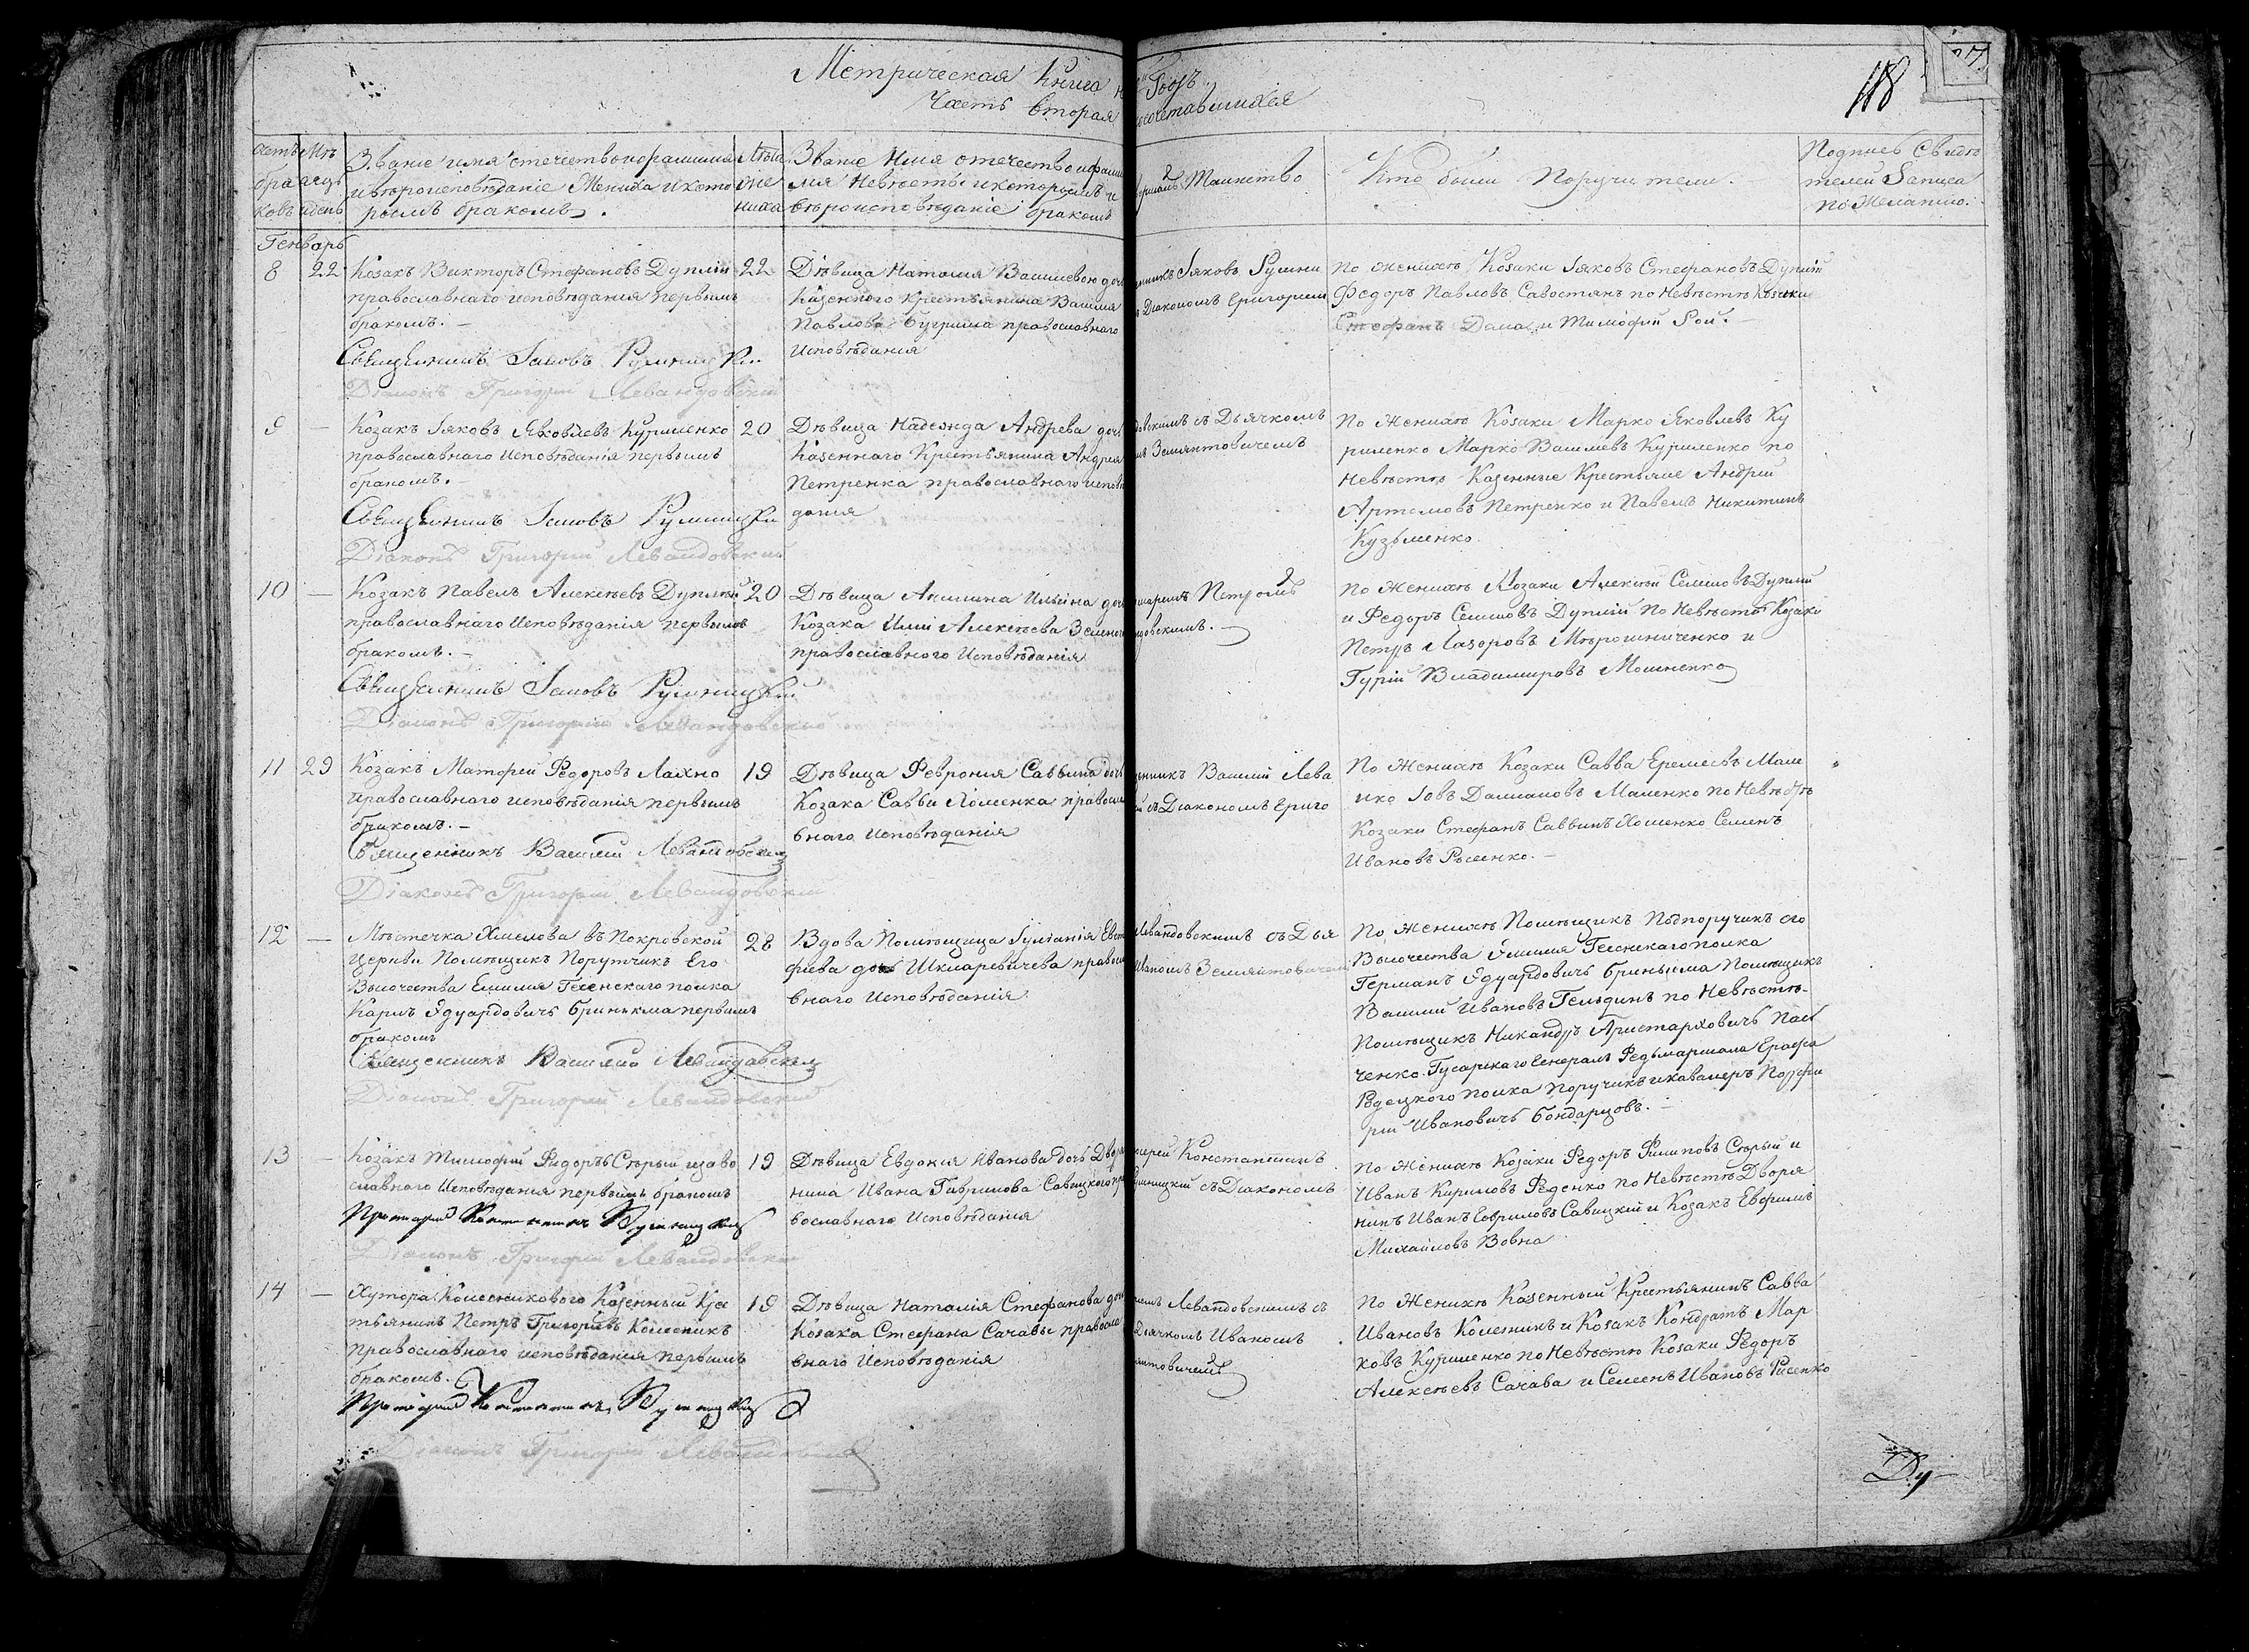 Метрическая книга н
Годъ
Часть вторая
сочетавшихся
118
27
Счетъ бра ковъ
Мѣ сяцъ и день
Званіе имя отечество и фамилия
и вѣроисповѣданіе Жениха и кото
рымъ бракомъ.
Лѣта
же
ниха
Званіе Имя отечество и фами
лія Невѣсты и которымъ и
вѣроисповѣданіе бракомъ
ершалъ Таинство
Кто были Поручители.
Подпись Свидѣ
телей Записа
по Желанію.
Генварь
8
22
Козакъ Викторъ Стефановъ Дуплій
православнаго исповѣдания первымъ
бракомъ. –
Священникъ Іаковъ Румницкій
Діаконъ Григорій Левандовскій
22
Дѣвица Наталия Василіевою доч
Казенного Крестьянина Василия
Павлова Бугрима православнаго
Исповѣдания
нникъ Іяковъ Румни
Діакономъ Григорием
По женихѣ Козаки Іяковъ Стефановъ Дуплій
Федоръ Павловъ Савостянъ по Невѣстѣ Козаки
Стефанъ и Тимофий Рой. –
9
–
Козакъ Іяковъ Яковлевъ Куриленко
православнаго Исповѣданія первымъ
бракомъ. –
Священникъ Іаковъ Румницкій
Діаконъ Григорий Левандовский
20
Дѣвица Надежда Андрева доч
Казеннаго Крестьянина Андрея
Петренка православнаго исповѣ
дания
довскимъ съ Дьячкомъ
Земянтовичемъ
По Женихѣ Козаки Марко Яковлевъ Ку
риленко Марко Василевъ Куриленко по
Невѣстѣ Казенные Крестьяне Андрий
Артемовъ Петренко и Павелъ Никитинъ
Кузьменко
10
–
Козакъ Павелъ Алексѣевъ Дуплій
православнаго Исповѣданія первымъ
бракомъ. –
Священникъ Іаковъ Румницкій
Діаконъ Григорий Левандовский
20
Дѣвица Акилина Ильіна доч
Козака Иліи Алексѣева Зеленого
православного Исповѣданія
номаремъ Петромъ
ндовскимъ. –
По Женихѣ Козаки Алексѣй Семиновъ Дуплий
и Федоръ Семиновъ Дуплій По Невѣстѣ Козаки
Петръ Лазоровъ Мѣрошниченко и
Гурій Владимировъ Мошненко
11
29
Козакъ Матфей Федоровъ Лахно
православнаго исповѣданія первымъ
бракомъ. –
Священникъ Василий Левандовский
Діаконъ Григорій Левандовскій
19
Дѣвица Феврония Саввина доч
Козака Саввы Хоменка правосла
внаго Исповѣданія
енникъ Василий Лева
съ Діакономъ Григо
По Женихѣ Козаки Савва Еремеевъ Мале
нко Іовъ Даміановъ Маленко по Невѣстѣ
Козаки Стефанъ Саввинъ Хоменко Семенъ
Ивановъ Рыленко. –
12
–
Мѣстечка Хмелова въ Покровской
Церкви Помѣщикъ Порутчикъ Его
Высочества Емилия Гесенскаго полка
Карлъ Эдуардовичъ Бринькма первымъ
бракомъ
Священникъ Василий Левандовский
Діаконъ Григорий Левандовский
28
Вдова Помѣщица Іулианія Евст
фиева дочь Шкляревичева правосла
внаго Исповѣданія
Левандовскимъ съ Дья
Иваномъ Земянтовичем
По Женихѣ Помѣщикъ Подпоручикъ его
Высочества Эмилия Гесенкаго полка
Германъ Эдуардовичъ Бринькма Помѣщикъ
Василий Ивановъ Гельдинъ по Невѣстѣ –
Помѣщикъ Никандръ Аристарховичъ Пас
ченко Гусарскаго Генерала Федьмаршала Графа
Рѣдецкого полка поручикъ и кавалеръ Порфи
рий Ивановичъ Бондарцовъ. –
13
–
Козакъ Тимофий Федоръ Сѣрый право
славнаго Исповѣдания первымъ бракомъ
Протоиерей Константинъ Румницкий
Діаконъ Григорий Левандовский
19
Дѣвица Евдокия Иванова дочь Дворя
нина Ивана Гаврилова Савицкого пра
вославнаго Исповѣдания
иерей Константинъ
Румницкий съ Діакономъ
По Женихѣ Козаки Федоръ Филиповъ Сѣрый и
Иванъ Кириловъ Феденко по Невѣстѣ Дворя
нинъ Иванъ Гавриловъ Савицкий и Козакъ Евфимій
Михайловъ Вовна
14
–
Хутора Колесникового Казенный Кре
стьянинъ Петръ Григориевъ Колесникъ
православнаго исповѣдания первымъ
бракомъ.
Протоиерей Константинъ Румницкий
Діаконъ Григорий Левандовский
19
Дѣвица Наталія Стефанова доч
Козака Стефана Сачавы правосла
внаго Исповѣданія
Левандовскимъ съ
Дьячкомъ Иваномъ
янтовичемъ
По Женихѣ Казенный Крестьянинъ Савва
Ивановъ Колесникъ и Козакъ Кондратъ Мар
ковъ Куриленко по Невѣстѣ Козаки Федоръ
Алексѣевъ Сачава и Семенъ Ивановъ Рыленко
Ду–